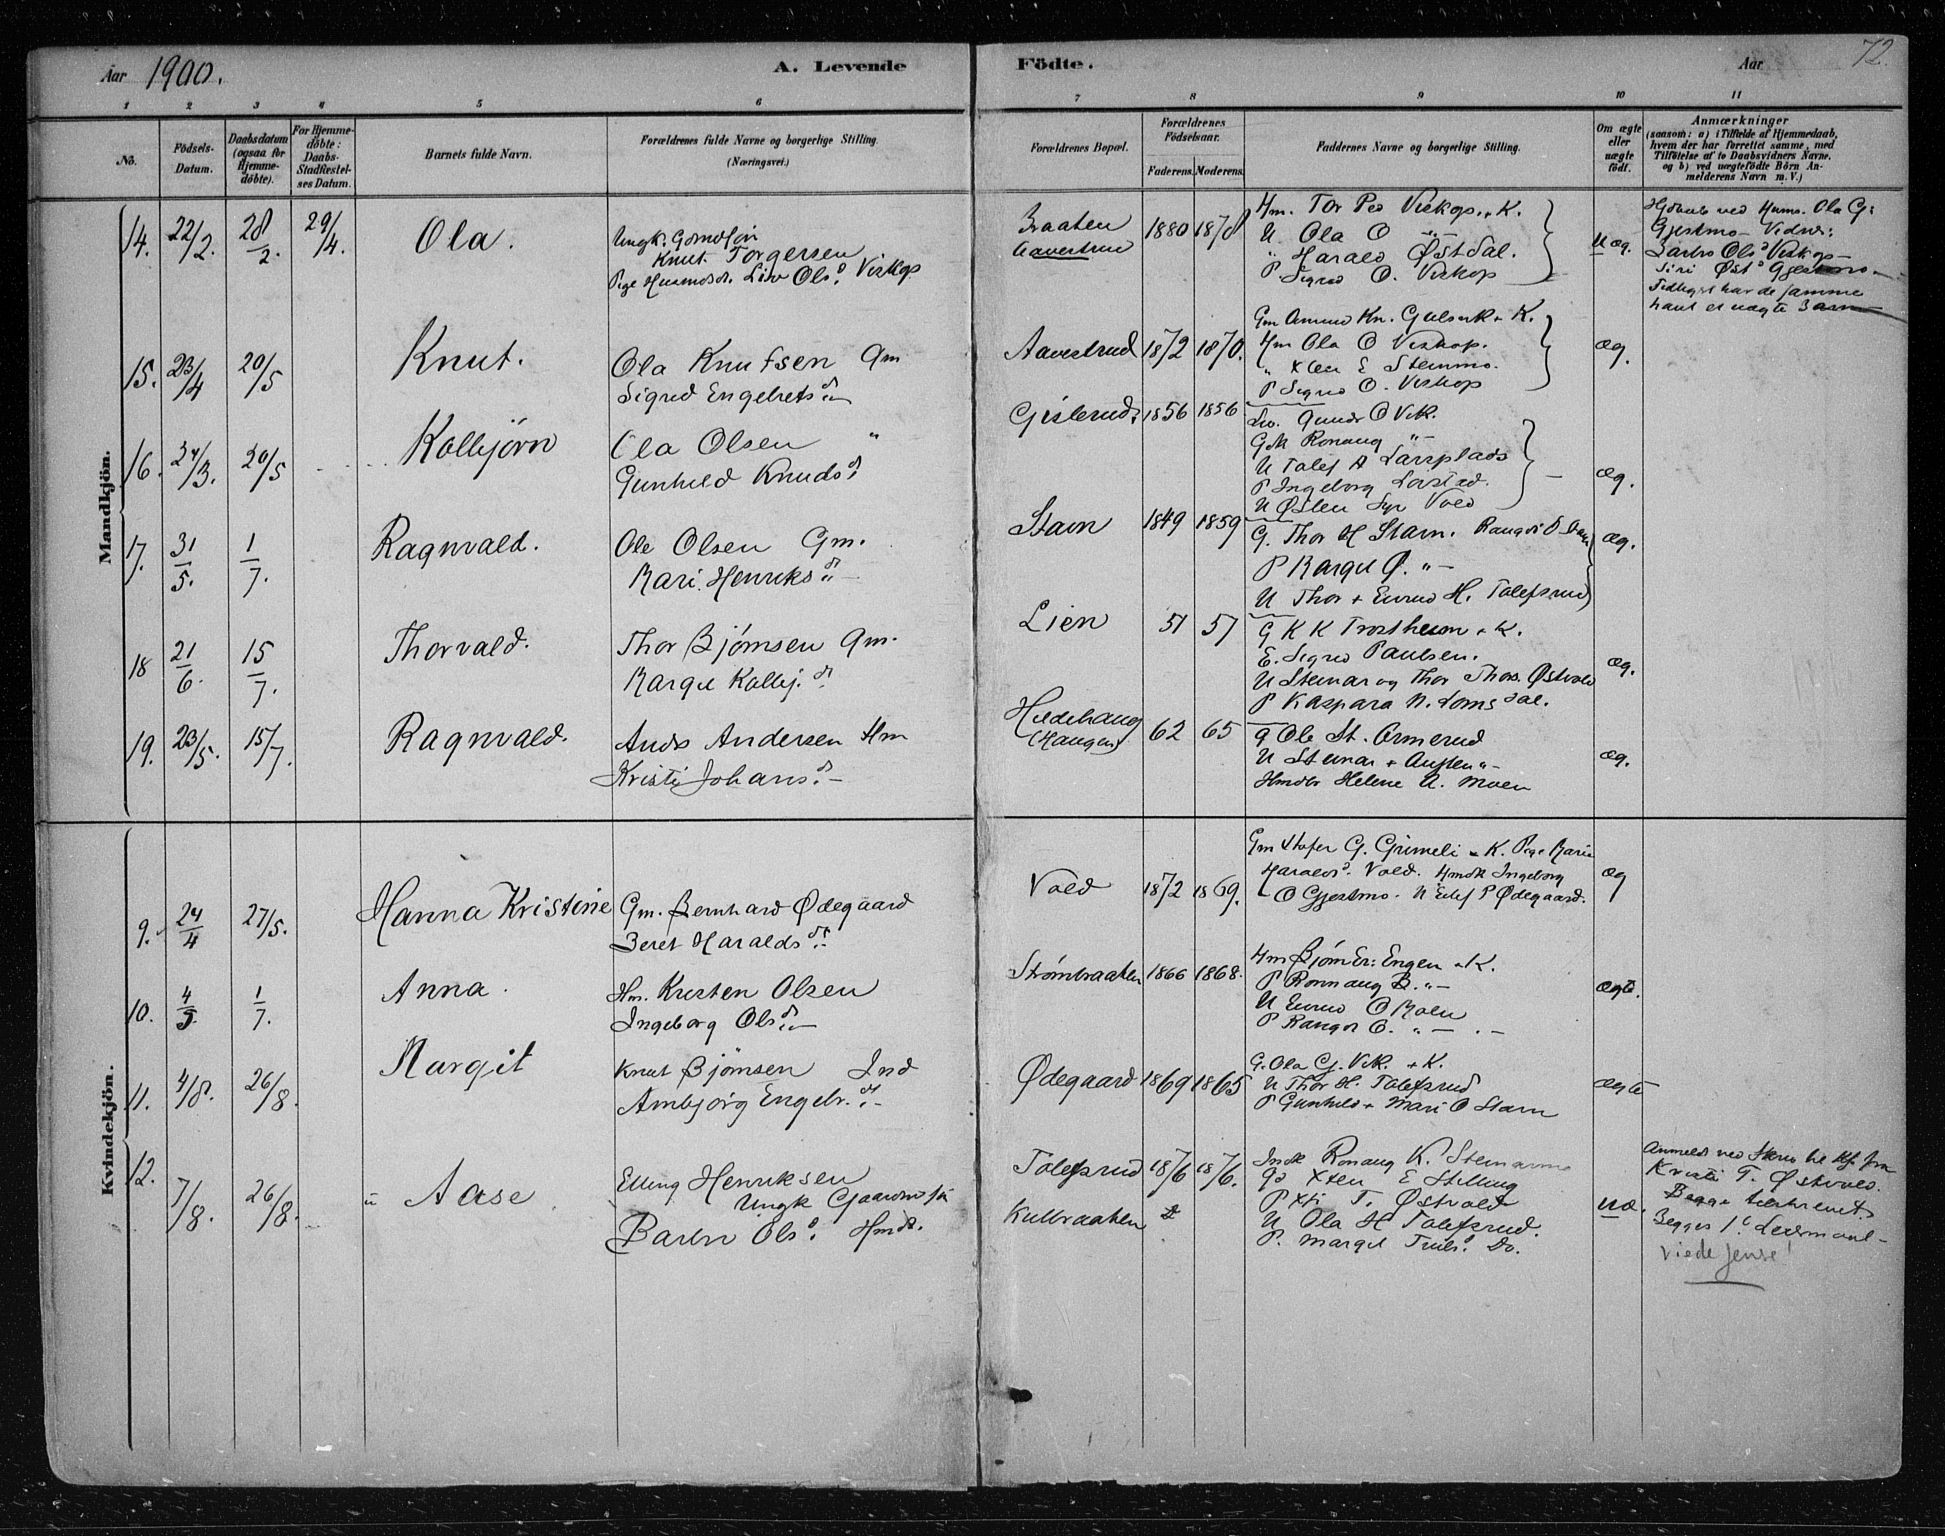 Aar 1900.
A. Levende Födte.
Aar 72.
1 2 3 4 5 6 7 8 9 10 11
No.
Födsels-Datum.
Daabsdatum (ogsaa for Hjemmedöbte).
For Hjemmedöbte: Daabs-Stadfæstelses Datum.
Barnets fulde Navn.
Forældrenes fulde Navne og borgerlige Stilling. (Næringsvei.)
Forældrenes Bopæl.
Forældrenes Födselsaar.
Faderens. Moderens.
Faddernes Navne og borgerlige Stilling.
Om ægte eller uægte födt.
Anmærkninger
(saasom: a) i Tilfælde af Hjemmedaab,
hvem der har forrettet samme, med
Tilföielse af to Daabsvidners Navne,
og b) ved uægtefödte Börn Anmelderens Navn m. V.)
Mandkjön.
14. 22/2. 28/2. 29/4. Ola.
Ungk. Gdmdsøn
Knut Torgersen
Pige Husmdsd. Liv Olsd. Viskop
Braaten
Aavestrud
1880 1878
Hm. Tor Ped Viskop. + K.
U. Ola O —"—
" Harald Østdal.
P Sigrid O. Viskop
Uæg.
Hjdaab ved Husm. Ola G.
Gjestmo — Vidner:
Barbro Olsd Viskop —
Siri Østd Gjestmo —
Tidligere har de samme
havt et uægte Barn —
15. 23/4 20/5 Knut.
Ola Knutsen Gm
Sigrid Engebretsd. —
Aavestrud 1872 1870.
Gm Amund Kn. Gulsvik + K.
Hm Ola O Viskop.
" Xten E Stenmo.
P Sigrid O. Viskop
æg.
16. 24/3. 20/5 Kolbjørn
Ola Olsen "
Gunhild Knudsd.
Gislerud. 1856 1856
Gdk Ronaug —"—
P Ingeborg
æg.
17. 31/5. 1/7. Ragnvald.
Ole Olsen Gm.
Kari Henriksd. —
Stavn 1849 1859
G. Thor H Stavn. Rangdi O Stavn
P Bargit Ø. —"—
U Thor + Eivind H. Tolefsrud
æg.
18 21/6. 15/7. Thorvald.
Thor Bjørnsen Gm.
Margit Kolbj.d.
Lien 51 57
G K K Trostheim + K.
E. Sigrid Paulsen.
U Steinar og Thor Thors. Østvold
P Kaspara N. Lomsdal.
æg.
19. 23/5. 15/7. Ragnvald.
Ands Andersen Hm
Kristi Johansd. —
Hildehaug
(Haugen)
62 65
G Ole St. Ormerud
U Steinar + Austen —"—
Hmdtr Helene A. Moen
æg.
Kvindekjön.
9. 24/4 27/5. Hanna Kristine
Gm. Bernhard Ødegaard
Beret Haraldsdt.
Vold 1872 1869.
Gm Stofer G. Grimeli + K. Pige Marie
Haraldsd. Vold. Hmdk Ingeborg
O Gjestmo. U Eilef P Ødegaard.
æg
10. 4/5. 1/7. Anna.
Hm. Kristen Olsen
Ingeborg Olsd. —
Strømbraaten 1866 1868.
Hm Bjørn Er: Engen + K.
P Ronnaug B. —"—
U Eivind O Moen
P Rangdi O. —"—
ægte.
11. 4/8. 26/8. Margit
Knut Bjørnsen Ind
Ambjørg Engebr.d. —
Ødegaard 1869 1865
G. Ola Gj. Vik. + K.
U Thor H. Tolefsrud
P Gunhild + Mari O Stavn
ægte
12. 7/8. 26/8. Aase
Elling Henriksen
Ungk Gaardmsøn
Barbro Olsd. Hmdt.
Tolefsrud 1876 1876.
Kulbraaten
Indk Ronaug K. Steinarmo
Gd Xten E Stilling
P Xti T. Østvold
U Ola H Tolefsrud.
P. Margit Trulsd. Do.
uæ.
Anmeldt ved Skriv til Kf. fra
Kristi T. Østvold.
Begge ubekrevet.
Begges 1ste Leiermaal —
viede senere!